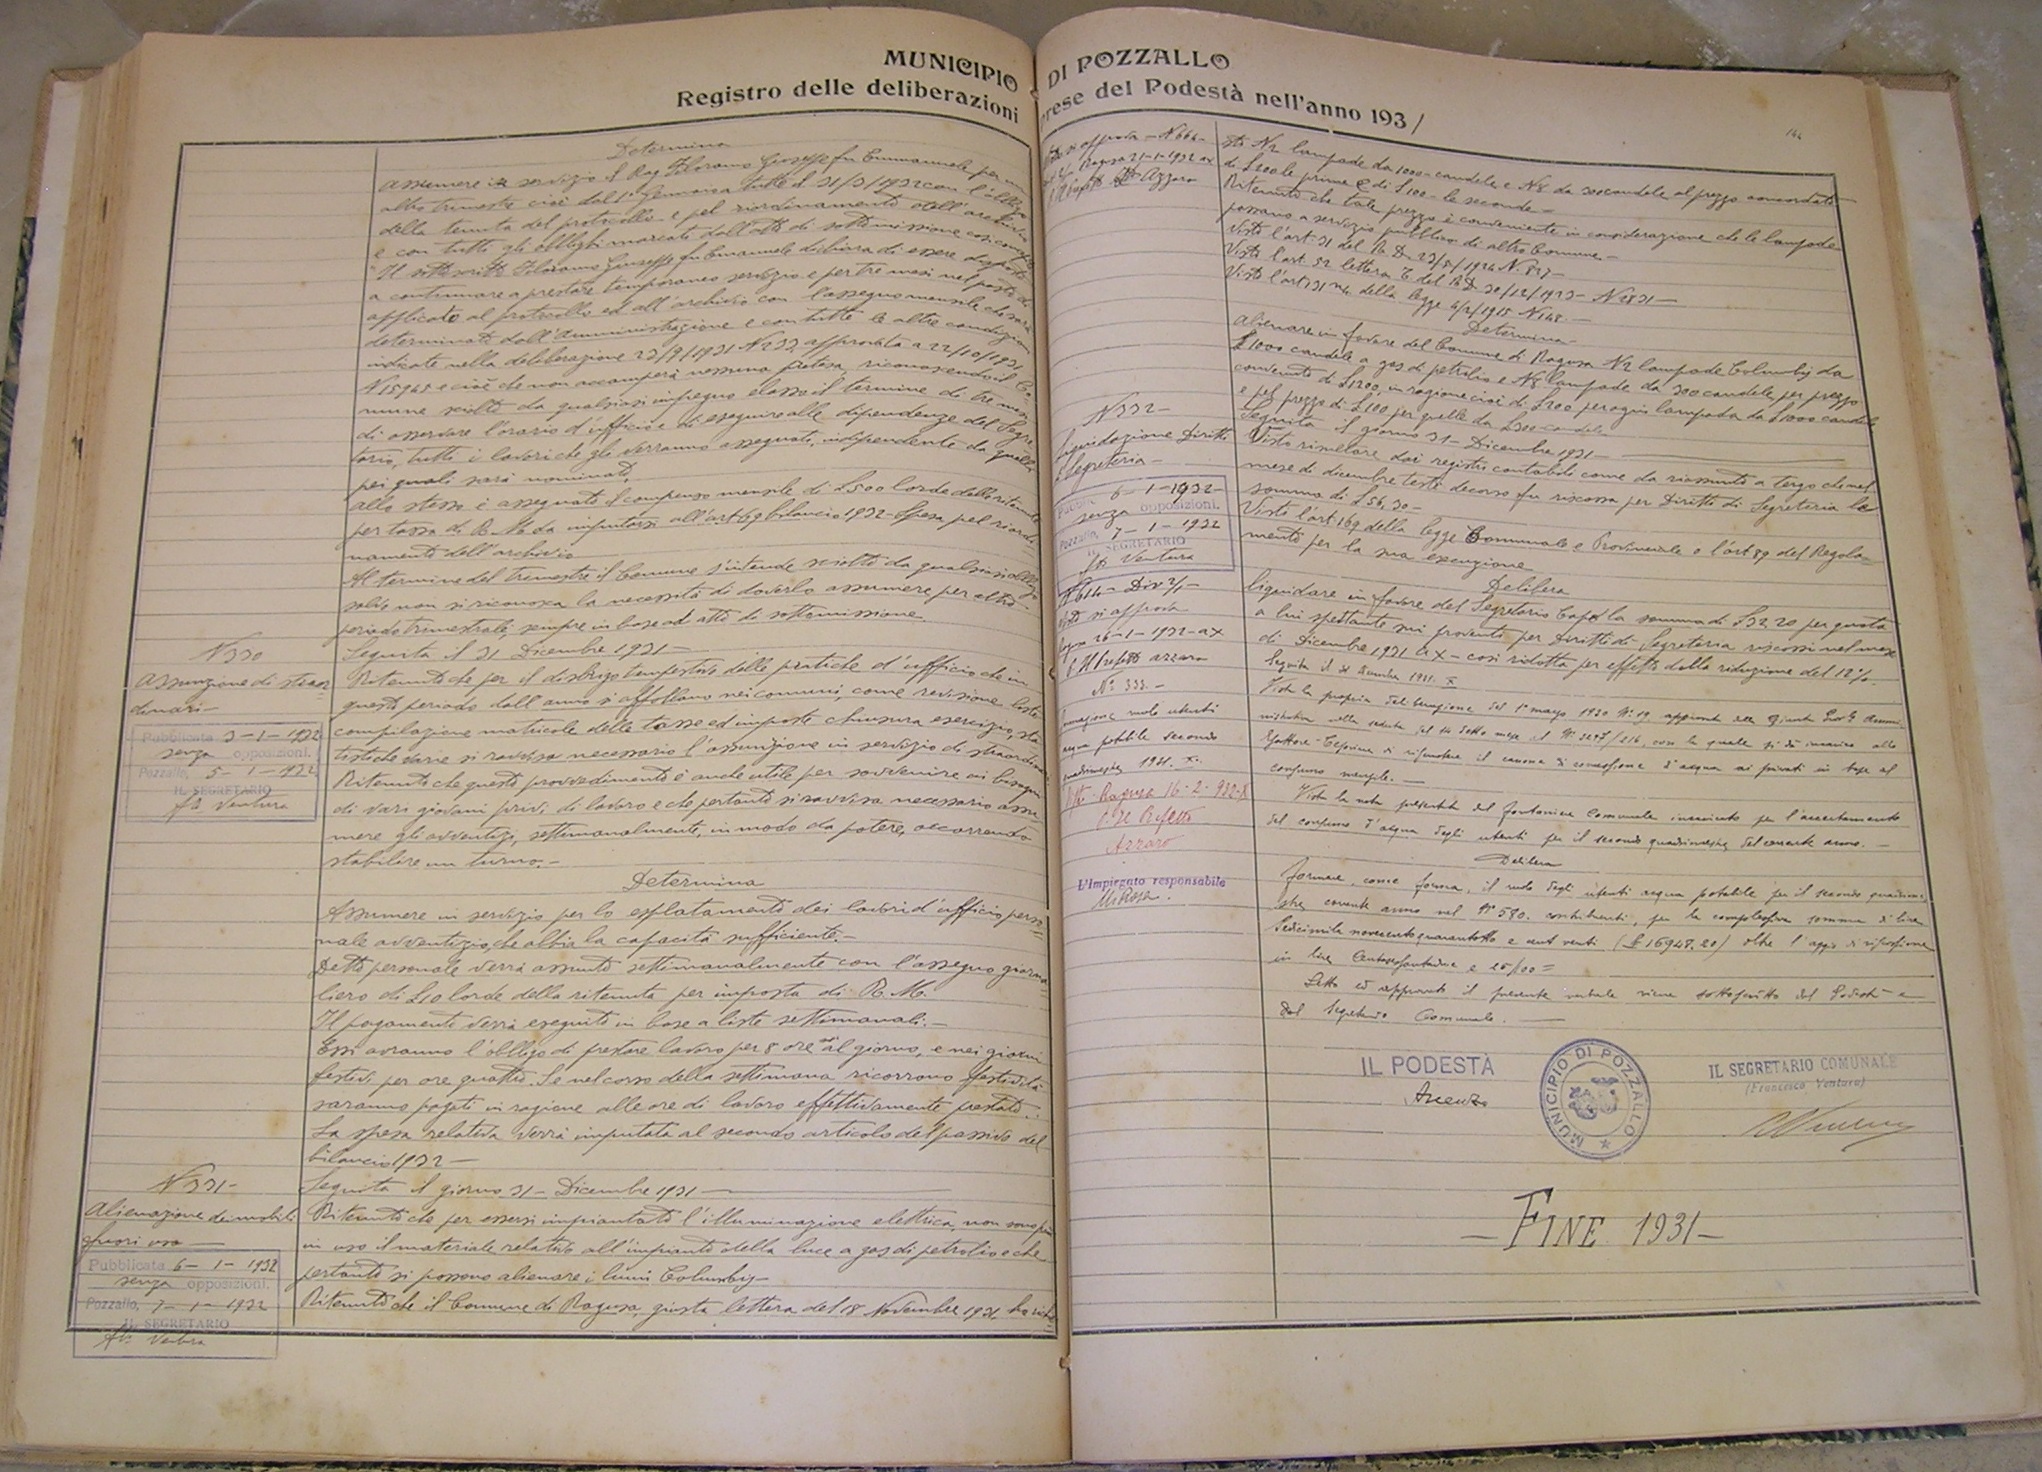 MUNICIPIO DI POZZALLO
Registro delle deliberazioni prese del Podestà nell'anno 1931
144
Determina
assumere in servizio il Rag. Floramo Giuseppe fu Emmanuele per un
altro trimestre cioè dal 1° Gennaio a tutto il 31/3/1932 con l'obbligo
della tenuta del protocollo e pel riordinamento dell'archivio
e con tutti gli obblighi marcati dall'atto di sottomissione così
Il sottoscritto Floramo Giuseppe fu Emanuele dichiara di essere disposto
a continuare a prestare temporaneo servizio e per tre mesi nel posto di
applicato al protocollo ed all'archivio con l'assegno mensile che sarà
determinato dall'Amministrazione e con tutte le altre condizioni
indicate nella deliberazione 23/9/1931 N 233 approvata a 22/10/1931
N 15945 e cioè che non accamperà nessuna pretesa, riconoscendo il Co-
mune sciolto da qualsiasi impegno elasso il termine di tre mesi
di osservare l'orario d'ufficio e di eseguire alle dipendenze del Segre
tario, tutti i lavori che gli verranno assegnati, indipendente da quelli
pei quali sarà nominato,
allo stesso è assegnato il compenso mensile di L 500 lorde della ritenuta
per tassa di R.M. da imputarsi all'art 69 bilancio 1932 - Spesa pel riordi-
namento dell'archivio
Al termine del trimestre il Comune s'intende sciolto da qualsiasi obbligo
salvo non si riconosca la necessità di doverlo assumere per altro
periodo trimestrale, sempre in base ad atto di sottomissione.
N 330
Assunzione di straor
dinari -
Pubblicata 3-1-1932
senza opposizioni.
Pozzallo, 5-1-1932
IL SEGRETARIO
fto Ventura
Seguita il 31 Dicembre 1931 -
Ritenuto che per il disbrigo tempestivo delle pratiche d'ufficio che in
questo periodo dell'anno si affollano nei comuni, come revisione liste
compilazione matricole delle tasse ed imposte chiusura esercizio, sta-
tistiche varie si ravvisa necessario l'assunzione in servizio di straordinari
Ritenuto che questo provvedimento è anche utile per sovvenire ai bisogni
di vari giovani privi di lavoro e che pertanto si ravvisa necessario assu
mere gli avventizi, settimanalmente, in modo da potere, occorrendo
stabilire un turno. -
Determina
Assumere in servizio per lo espletamento dei lavori d'ufficio, perso=
nale avventizio, che abbia la capacità sufficiente. -
Detto personale verrà assunto settimanalmente con l'assegno giorna-
liero di L 10 lorde della ritenuta per imposta di R.M.
Il pagamento verrà eseguito in base a liste settimanali. -
Essi avranno l'obbligo di prestare lavoro per 8 ore al giorno, e nei giorni
festivi per ore quattro. Se nel corso della settimana ricorrono festività
saranno pagati in ragione alle ore di lavoro effettivamente prestato.
La spesa relativa verrà imputata al secondo articolo del passivo del
bilancio 1932 -
N 331 -
Alienazione dei mobili
fuori uso
Pubblicata 6-1-1932
senza opposizioni.
Pozzallo, 7-1-1932
IL SEGRETARIO
fto Ventura
Seguita il giorno 31 - Dicembre 1931
Ritenuto che per essersi impiantata l'illuminazione elettrica, non sono più
in uso il materiale relativo all'impianto della luce a gas di petrolio e che
pertanto si possono alienare i lumi Columbig -
Ritenuto che il Comune di Ragusa, giusta lettera del 18 Novembre 1931, ha richie
si approva - N 664 -
Ragusa 21-1-1932 ax
Il Prefetto fto Azzaro
sto N2 lampade da 1000 candele e N8 da 300 candele al prezzo concordato
di L 200 le prime e di L 100 - le seconde -
Ritenuto che tale prezzo è conveniente in considerazione che le lampade
passano a servizio pubblico di altro Comune -
Visto l'art 31 del R.D. 23/5/1924 N. 827 -
Visto l'art. 52 lettera E del R.D. 30/12/1923 - N 2831 -
Visto l'art 131 n4 della legge 4/2/1915 N 148 -
Determina
alienare in favore del Comune di Ragusa N2 lampade Columbig da
1000 candele a gas di petrolio e N8 lampade da 300 candele per prezzo
convenuto di L 1200, in ragione cioè di L 200 per ogni lampada da L 1000 candele
e pel prezzo di L 100 per quelle da L 300 candele
N 332 -
Liquidazione Diritti
Segreteria -
6-1-1932
senza opposizioni.
Pozzallo, 7-1-1932
IL SEGRETARIO
fto Ventura
N 614 - Div 2/1 -
si approva
Ragusa 26-1-1932 - ax
Il Prefetto Azzaro
Seguita il giorno 31 - Dicembre 1931 -
Visto risultare dai registri contabili come da riassunto a tergo che nel
mese di dicembre testè decorso fu riscossa per Diritti di Segreteria la
somma di L 56,30 -
Visto l'art 169 della legge Comunale e Provinciale e l'art 89 del Regola-
mento per la sua esecuzione
Delibera
Liquidare in favore del Segretario Capo la somma di L 32,20 per quota
a lui spettante sui proventi per Diritti di Segreteria riscossi nel mese
di Dicembre 1931 ax - così ridotta per effetto della riduzione del 12%.
N° 333. -
ruolo utenti
acqua potabile secondo
quadrimestre 1931. X.
Ragusa 16-2-932-X
Il Prefetto
Azzaro
L'Impiegato responsabile
Seguita il 31 Dicembre 1931. X
Vista la propria deliberazione del 1° maggio 1930 N. 19 approvata dalla Giunta Prov. Ammi-
nistrativa nella seduta del 14 detto mese al N° 3297/216, con la quale si dà incarico allo
Esattore-Tesoriere di riscuotere il canone di concessione d'acqua ai privati in base al
consumo mensile. -
Vista la nota presentata dal fontaniere Comunale incaricato per l'accertamento
del consumo d'acqua degli utenti per il secondo quadrimestre del corrente anno. -
Delibera
formare, come forma, il ruolo degli utenti acqua potabile per il secondo quadrime-
stre corrente anno nel N° 580. contribuenti, per la complessiva somma di lire
Sedicimila novecentoquarantotto e cent venti (£ 16948.20) oltre l'aggio di riscossione
in lire e 25/100 =
Letto ed approvato il presente verbale viene sottoscritto dal Podestà e
dal Segretario Comunale. -
IL PODESTÀ
MUNICIPIO DI POZZALLO
IL SEGRETARIO COMUNALE
(Francesco Ventura)
- FINE 1931 -